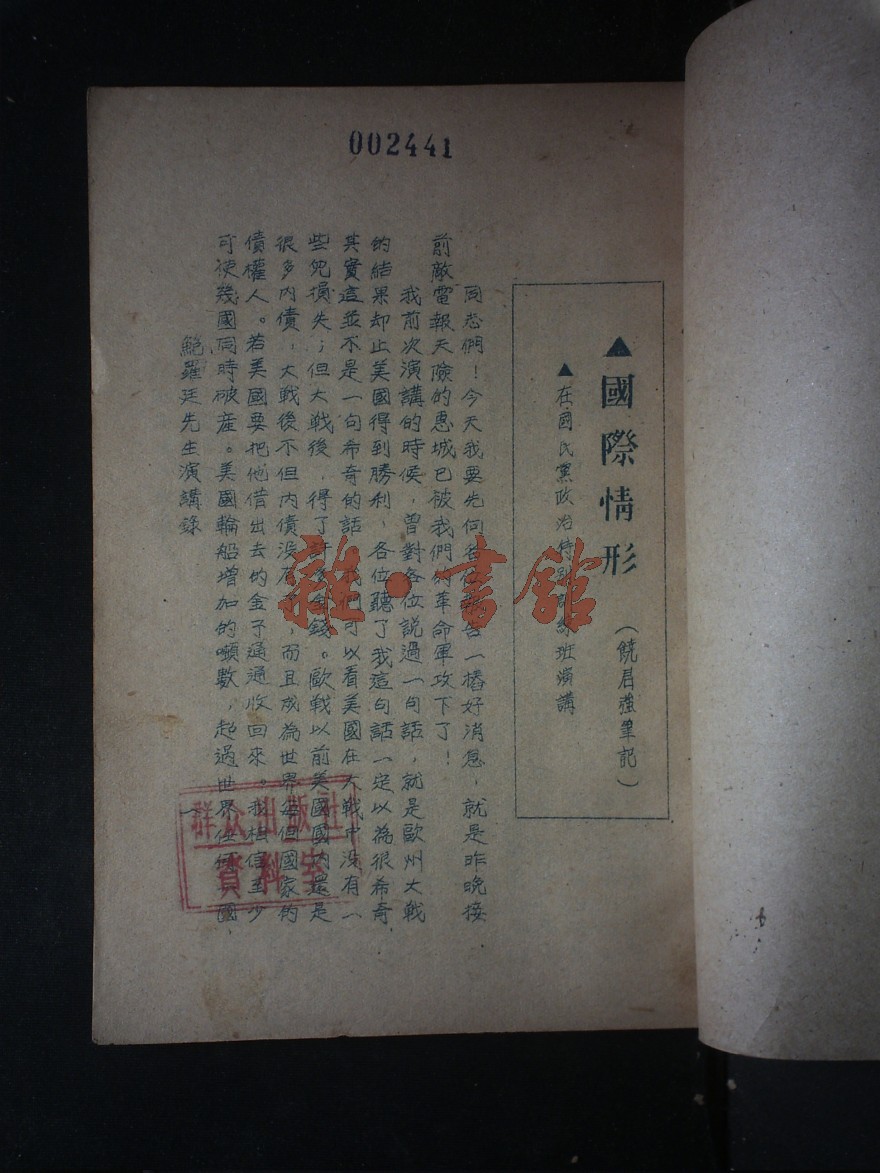 002441
▲國際情形
(饒君強筆記)
▲在國民黨政治特別 班演講
同志們！今天我要先向各位報告一樁好消息，就是昨晚接
前敵電報天險的惠城已被我們的革命軍攻下了！
我前次演講的時候，曾對各位說過一句話，就是歐州大戰
的結果却止美國得到勝利，各位聽了我這句話一定以為很希奇，
其實這並不是一句希奇的話，我們可以看美國在大战中没有一
些兒損失；但大战後，得了許多金錢。歐战以前美國國内還是
很多内債，大战後不但内債没有了，而且成為世界每個國家的
債權人。若美國要把他借出去的金子通通收回來。我相信至少
可使幾國同時破産。美國輪船增加的噸數，起過世界任何一國，
鮑羅廷先生演講錄
一
群众出版社
資料室
雜·書館